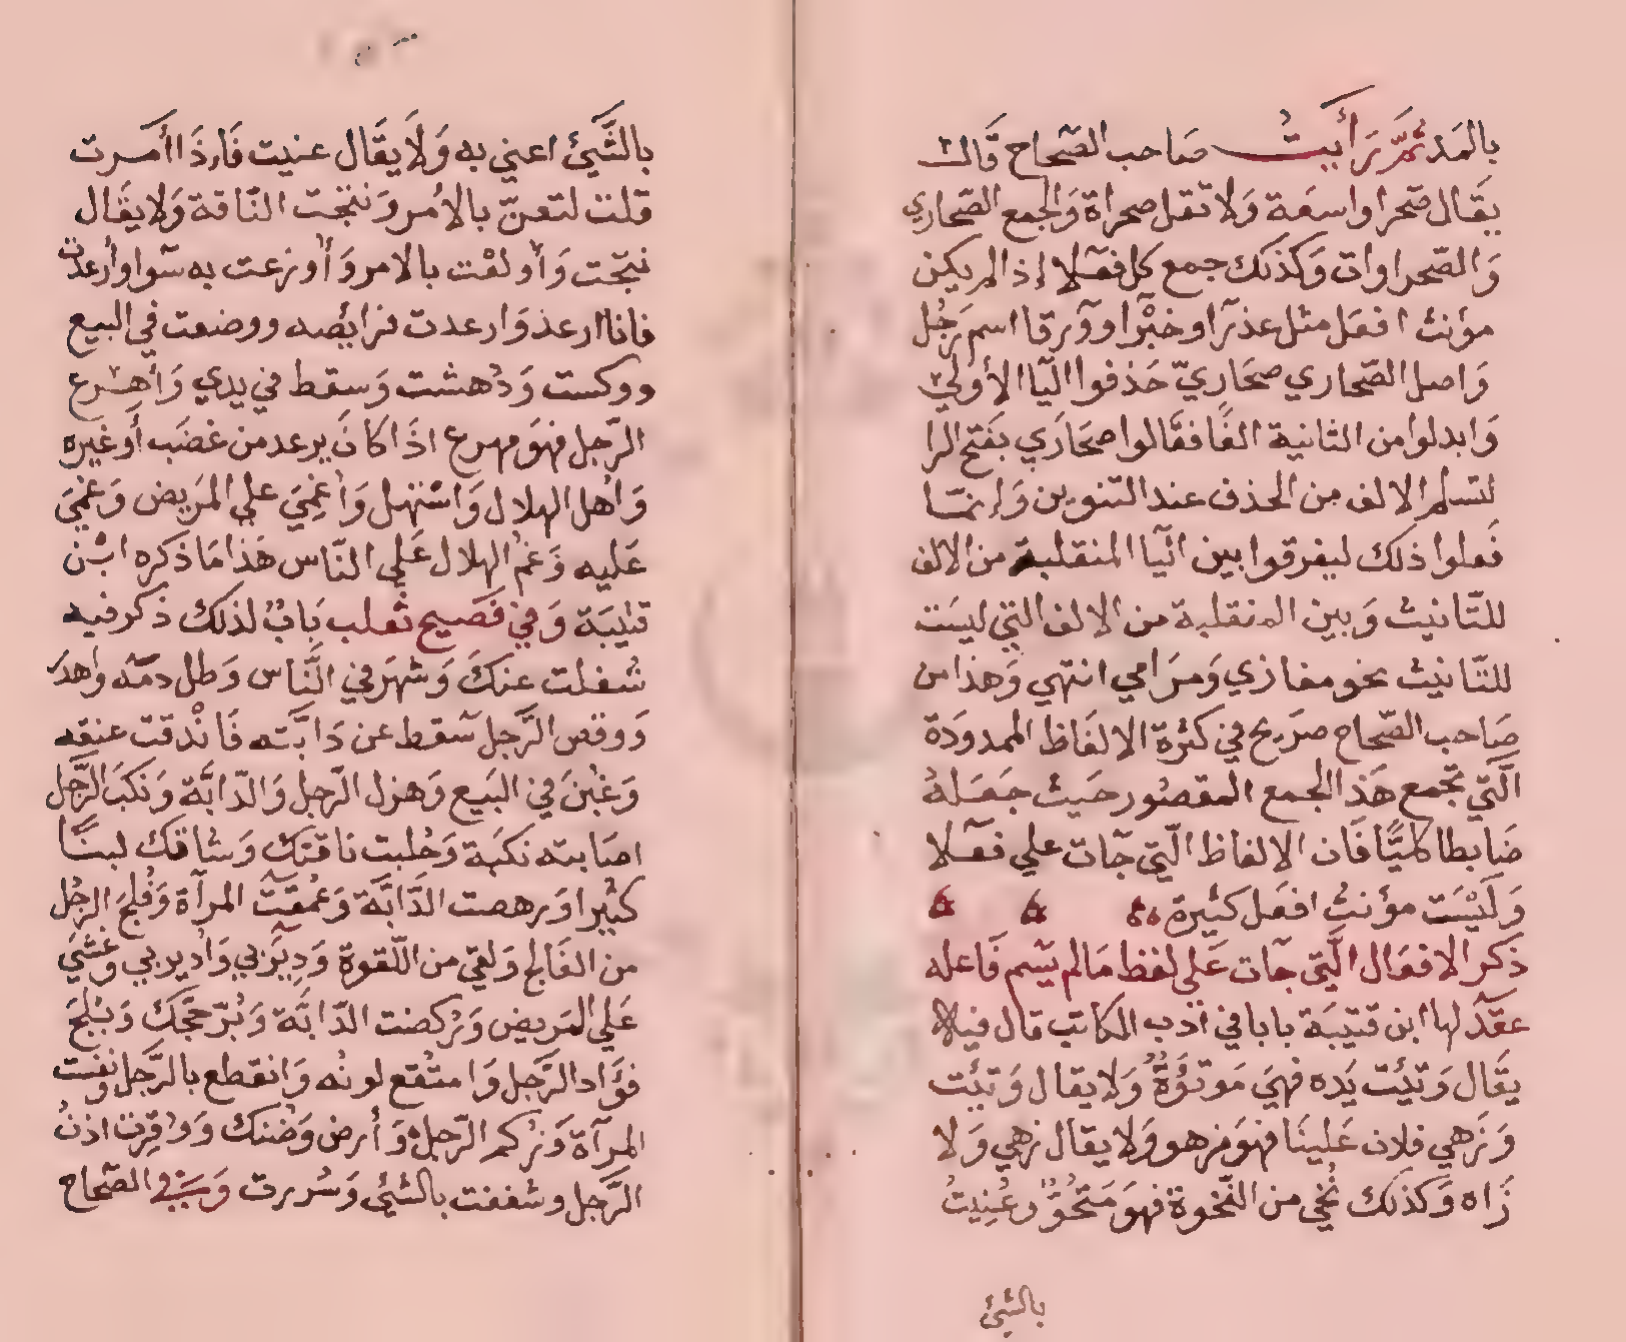 بالمَد ثمَّ رَأَيتُ صَاحب الصّحاح قَال
يقَال صَحرا واسعَة وَلا تقل صحراة وَالجمع الصّحاري
وَالصّحراوات وَكذلك جمع كل فعَلا إذا لم يكن
مؤنث افعَل مثل عذرَا وخبْرَا وورقا اسم رَجُل
وَاصل الصّحاري صحَاريّ حَذفوا اليَا الأولي
وَابدلوا من الثانية الفًا فقَالوا صحَارَي بفَتح الرا
لتسلم الالف من الحذف عند التنوين وَإنمّا
فَعلوا ذلك ليفرقوا بين اليَا المنقلبة من الالف
للتّانيث وَبين المنقلبة من الالف التي ليسَت
للتّانيث نحو مغازي وَمرَامي انتهي وَهذا من
صَاحب الصّحاح صرَيح في كثرة الالفَاظ الممدودَة
الّتي تجمع هَذا الجمع المقصُور حَيث جَعَلهُ
ضَابطا كليًّا فَان الالفاظ الّتي جَات علي فعَلا
وَليْسَت مؤنث افعَل كثيرة
ذكر الافعَال الَّتي جَات عَلي لفظ مَا لم يسَم فَاعله
عقَد لها ابن قتيبَة بابا في أدب الكاتب قال فيه
يقَال وَثئت يَده فهيَ مَوثؤُةٌ وَلا يقال وَثئت
وَزَهي فلان عَلينَا فهوَ مزهو وَلا يقال زهي وَلا
زَاه وَكذلك نُخي من النّخوة فهوَ مَنخُوٌّ وعُنِيتُ
بالشيئ
بالشَّيئ اعني به وَلَا يقَال عنيت فَاِذَا أمَرت
قلت لتعنّ بالامُر وَنتجت النّاقة وَلا يقَال
نتجَت وَأُولعْت بالامر وَأوزعت به سَوا وأُرعدت
فانا ارعد وَارعدت فرايصُه ووضعت في البيع
ووكست وَدُهشت وَسقط في يدي وَأهرع
الرّجل فهوَ مهرع اذَا كانَ يرعد من غضَب أَو غيره
وَاُهل الهلال وَاسْتهل وَاُغمِيَ علي المَريض وَغُمِيَ
عَليه وَغمُ الهلال عَلي النّاس هَذا مَا ذكره ابْن
قتيبَة وَفي فَصَيح ثعلب بَابُ لذلك ذكر فيه
شُغلت عنكَ وَشهَر في النَّاس وَطل دمَه واهدَر
وَوقص الرَّجل سَقط عن دَابَّته فَانْدقت عنقه
وَغبْنَ في البَيع وَهزل الرّجل وَالدّابَّة وَنكبَ الرَّجل
اصَابته نكبَة وَحُلبت ناقتَك وَشاتك لبنًا
كثيرا وَرهصت الدَّابَّة وَعُقمَت المرآة وَفُلجَ الرجُل
من الفَالج وَلقيَ من اللّقوة وَدِيرَ بي وَاُدير بي وغشيَ
عَلي المَريض وَرُكضت الدّابَّة وَبُرّ حجّك وَثلجَ
فؤَاد الرَّجل وَامتُقع لونُه وَانقطع بالرَّجل ونفست
المرآة وَزُكم الرّجل وَأُرض وَضُنك وَوُقِرت اذنُ
الرَّجل وشغفت بالشيئ وَسُررت وَ في الصّحاح